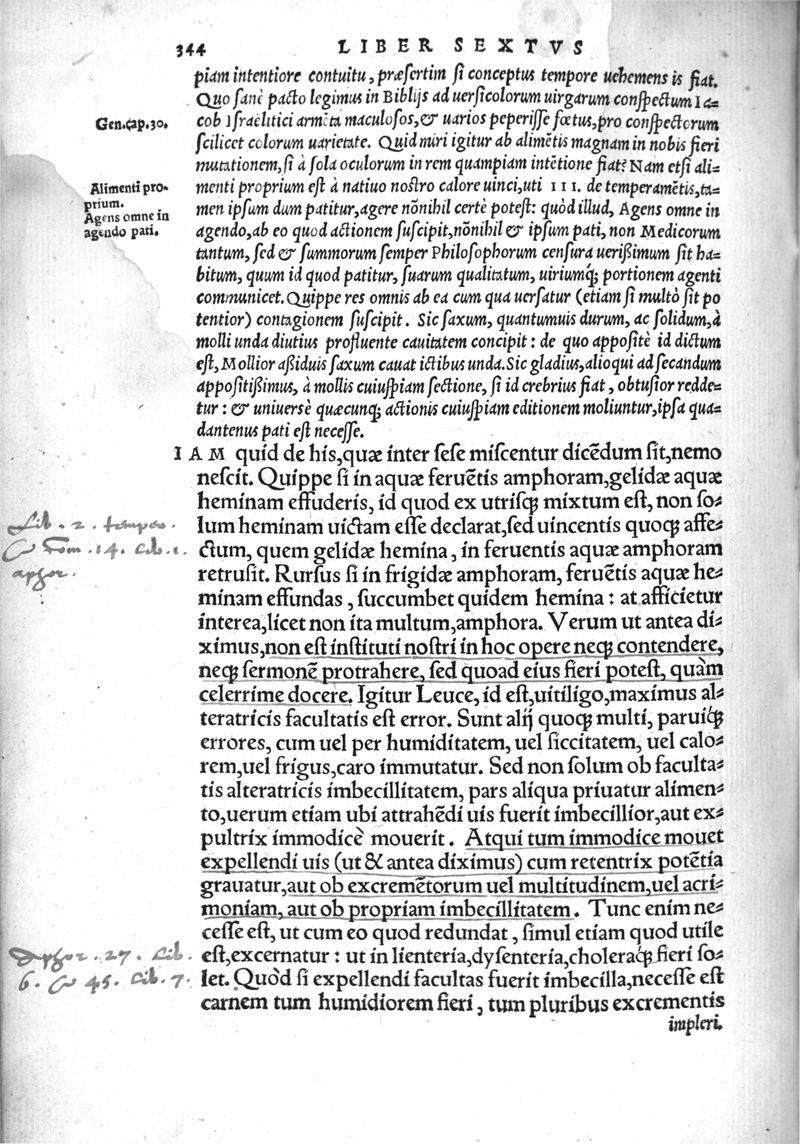 344 LIBER SEXTVS
piam intentiore contuitu, præsertim si conceptus tempore uehemens is fiat.
Quo sanè pacto legimus in Biblijs ad uersicolorum uirgarum conspectum Ia-
Gen. cap. 30.
cob Israëlitici armẽta maculosos, & uarios peperisse fœtus, pro conspectorum
scilicet colorum uarietate. Quid miri igitur ab alimẽtis magnam in nobis fieri
mutationem, si à sola oculorum in rem quampiam intẽtione fiat? Nam etsi ali-
Alimenti pro-
prium.
menti proprium est à natiuo nostro calore uinci, uti III. de temperamẽtis, ta-
men ipsum dum patitur, agere nõnihil certè potest: quòd illud, Agens omne in
Agens omne in
agendo pati.
agendo, ab eo quod actionem suscipit, nõnihil & ipsum pati, non Medicorum
tantum, sed & summorum semper Philosophorum censura uerißimum sit ha-
bitum, quum id quod patitur, suarum qualitatum, uiriumq́; portionem agenti
communicet. Quippe res omnis ab ea cum qua uersatur (etiam si multò sit po
tentior) contagionem suscipit. Sic saxum, quantumuis durum, ac solidum, à
molli unda diutius profluente cauitatem concipit: de quo appositè id dictum
est, Mollior aßiduis saxum cauat ictibus unda. Sic gladius, alioqui ad secandum
appositißimus, à mollis cuiuspiam sectione, si id crebrius fiat, obtusior redde-
tur: & uniuersè quæcunq; actionis cuiuspiam editionem moliuntur, ipsa qua-
dantenus pati est necesse.
IAM quid de his, quæ inter sese miscentur dicẽdum sit, nemo
nescit. Quippe si in aquæ feruẽtis amphoram, gelidæ aquæ
heminam effuderis, id quod ex utrisq; mixtum est, non so-
lum heminam uictam esse declarat, sed uincentis quoq; affe-
Lib. 2. tempera.
& Com. 14. Lib. 1.
aphor.
ctum, quem gelidæ hemina, in feruentis aquæ amphoram
retrusit. Rursus si in frigidæ amphoram, feruẽtis aquæ he-
minam effundas, succumbet quidem hemina: at afficietur
interea, licet non ita multum, amphora. Verum ut antea di-
ximus, non est instituti nostri in hoc opere neq; contendere,
neq; sermonẽ protrahere, sed quoad eius fieri potest, quàm
celerrime docere. Igitur Leuce, id est, uitiligo, maximus al-
teratricis facultatis est error. Sunt alij quoq; multi, paruiq́;
errores, cum uel per humiditatem, uel siccitatem, uel calo-
rem, uel frigus, caro immutatur. Sed non solum ob faculta-
tis alteratricis imbecillitatem, pars aliqua priuatur alimen-
to, uerum etiam ubi attrahẽdi uis fuerit imbecillior, aut ex-
pultrix immodicè mouerit. Atqui tum immodice mouet
expellendi uis (ut & antea diximus) cum retentrix potẽtia
grauatur, aut ob excremẽtorum uel multitudinem, uel acri-
moniam, aut ob propriam imbecillitatem. Tunc enim ne-
cesse est, ut cum eo quod redundat, simul etiam quod utile
Aphor. 27. Lib.
6. & 45. Lib. 7.
est, excernatur: ut in lienteria, dysenteria, choleraq́; fieri so-
let. Quòd si expellendi facultas fuerit imbecilla, necesse est
carnem tum humidiorem fieri, tum pluribus excrementis
impleri.